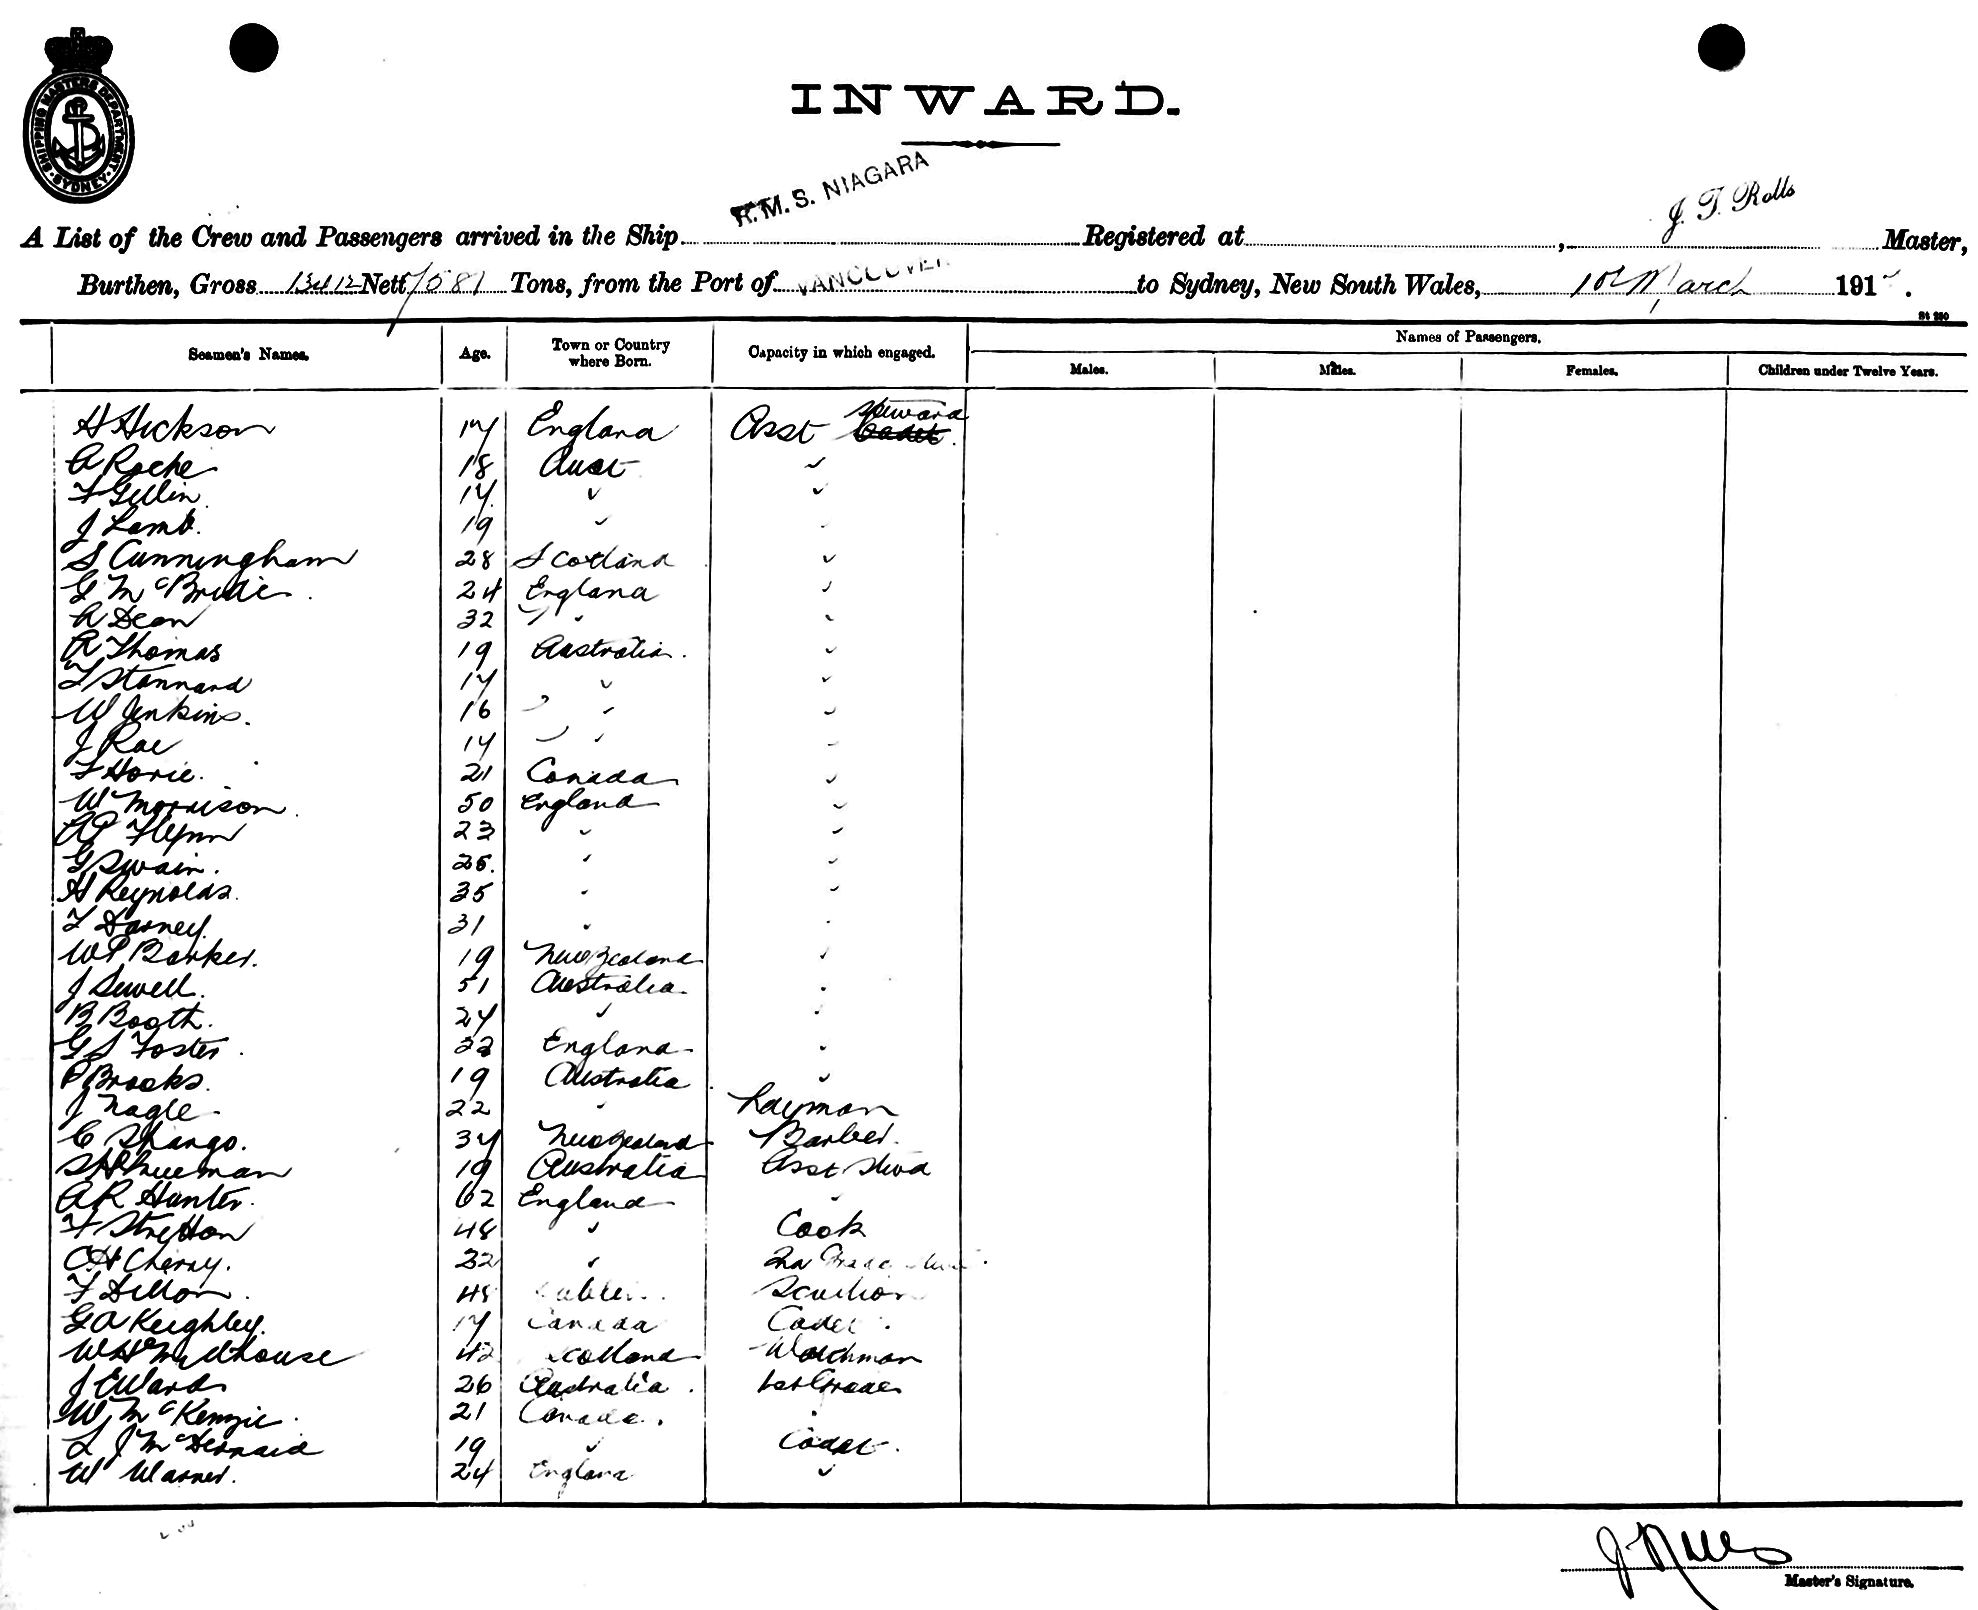 SHIPPING MASTERS DEPARTMENT. SYDNEY.
INWARD.
R.M.S. NIAGARA
J. T. Rolls
A List of the Crew and Passengers arrived in the Ship Registered at , Master,
Burthen, Gross Nett 7581 Tons, from the Port of VANCOUVER to Sydney, New South Wales, March 191 .
St 230
Seamen's Names. Age. Town or Country where Born. Capacity in which engaged. Names of Passengers.
Males. Males. Females. Children under Twelve Years.
H Hickson 17 England Asst Steward
A Roche 18 Aust "
F Gillin 17 " "
J Lamb. 19 " "
S Cunningham 28 Scotland "
G McBride. 24 England "
A Dean 32 " "
A Thomas 19 Australia. "
Stannard 17 " "
W Jenkins. 16 " "
J Rae 17 " "
Horie. 21 Canada "
W Morrison. 50 England "
AP Flynn 23 " "
G Swain. 25. " "
H Reynolds. 35 " "
Darney. 31 " "
WP Barker. 19 New Zealand "
J Sewell. 51 Australia. "
B Booth. 27 " "
G S Foster. 22 England "
P Brooks. 19 Australia "
J Nagle. 22 " Layman
C Shango. 37 New Zealand Barber.
Freeman 19 Australia Asst Stwd
AR Hunter. 62 England "
F Stretton 48 " Cook
CH Cherry. 32 " 2nd Grade
F Dillon. 48 Scullion
GA Keighley. 17 Canada Cadet.
WH Millhouse 42 Scotland Watchman
J E Ward 26 Australia. 1st Grade
W McKenzie. 21 Canada. "
L J McDermaid 19 " Cadet.
W Warner. 24 England "
J Rolls
Master's Signature.